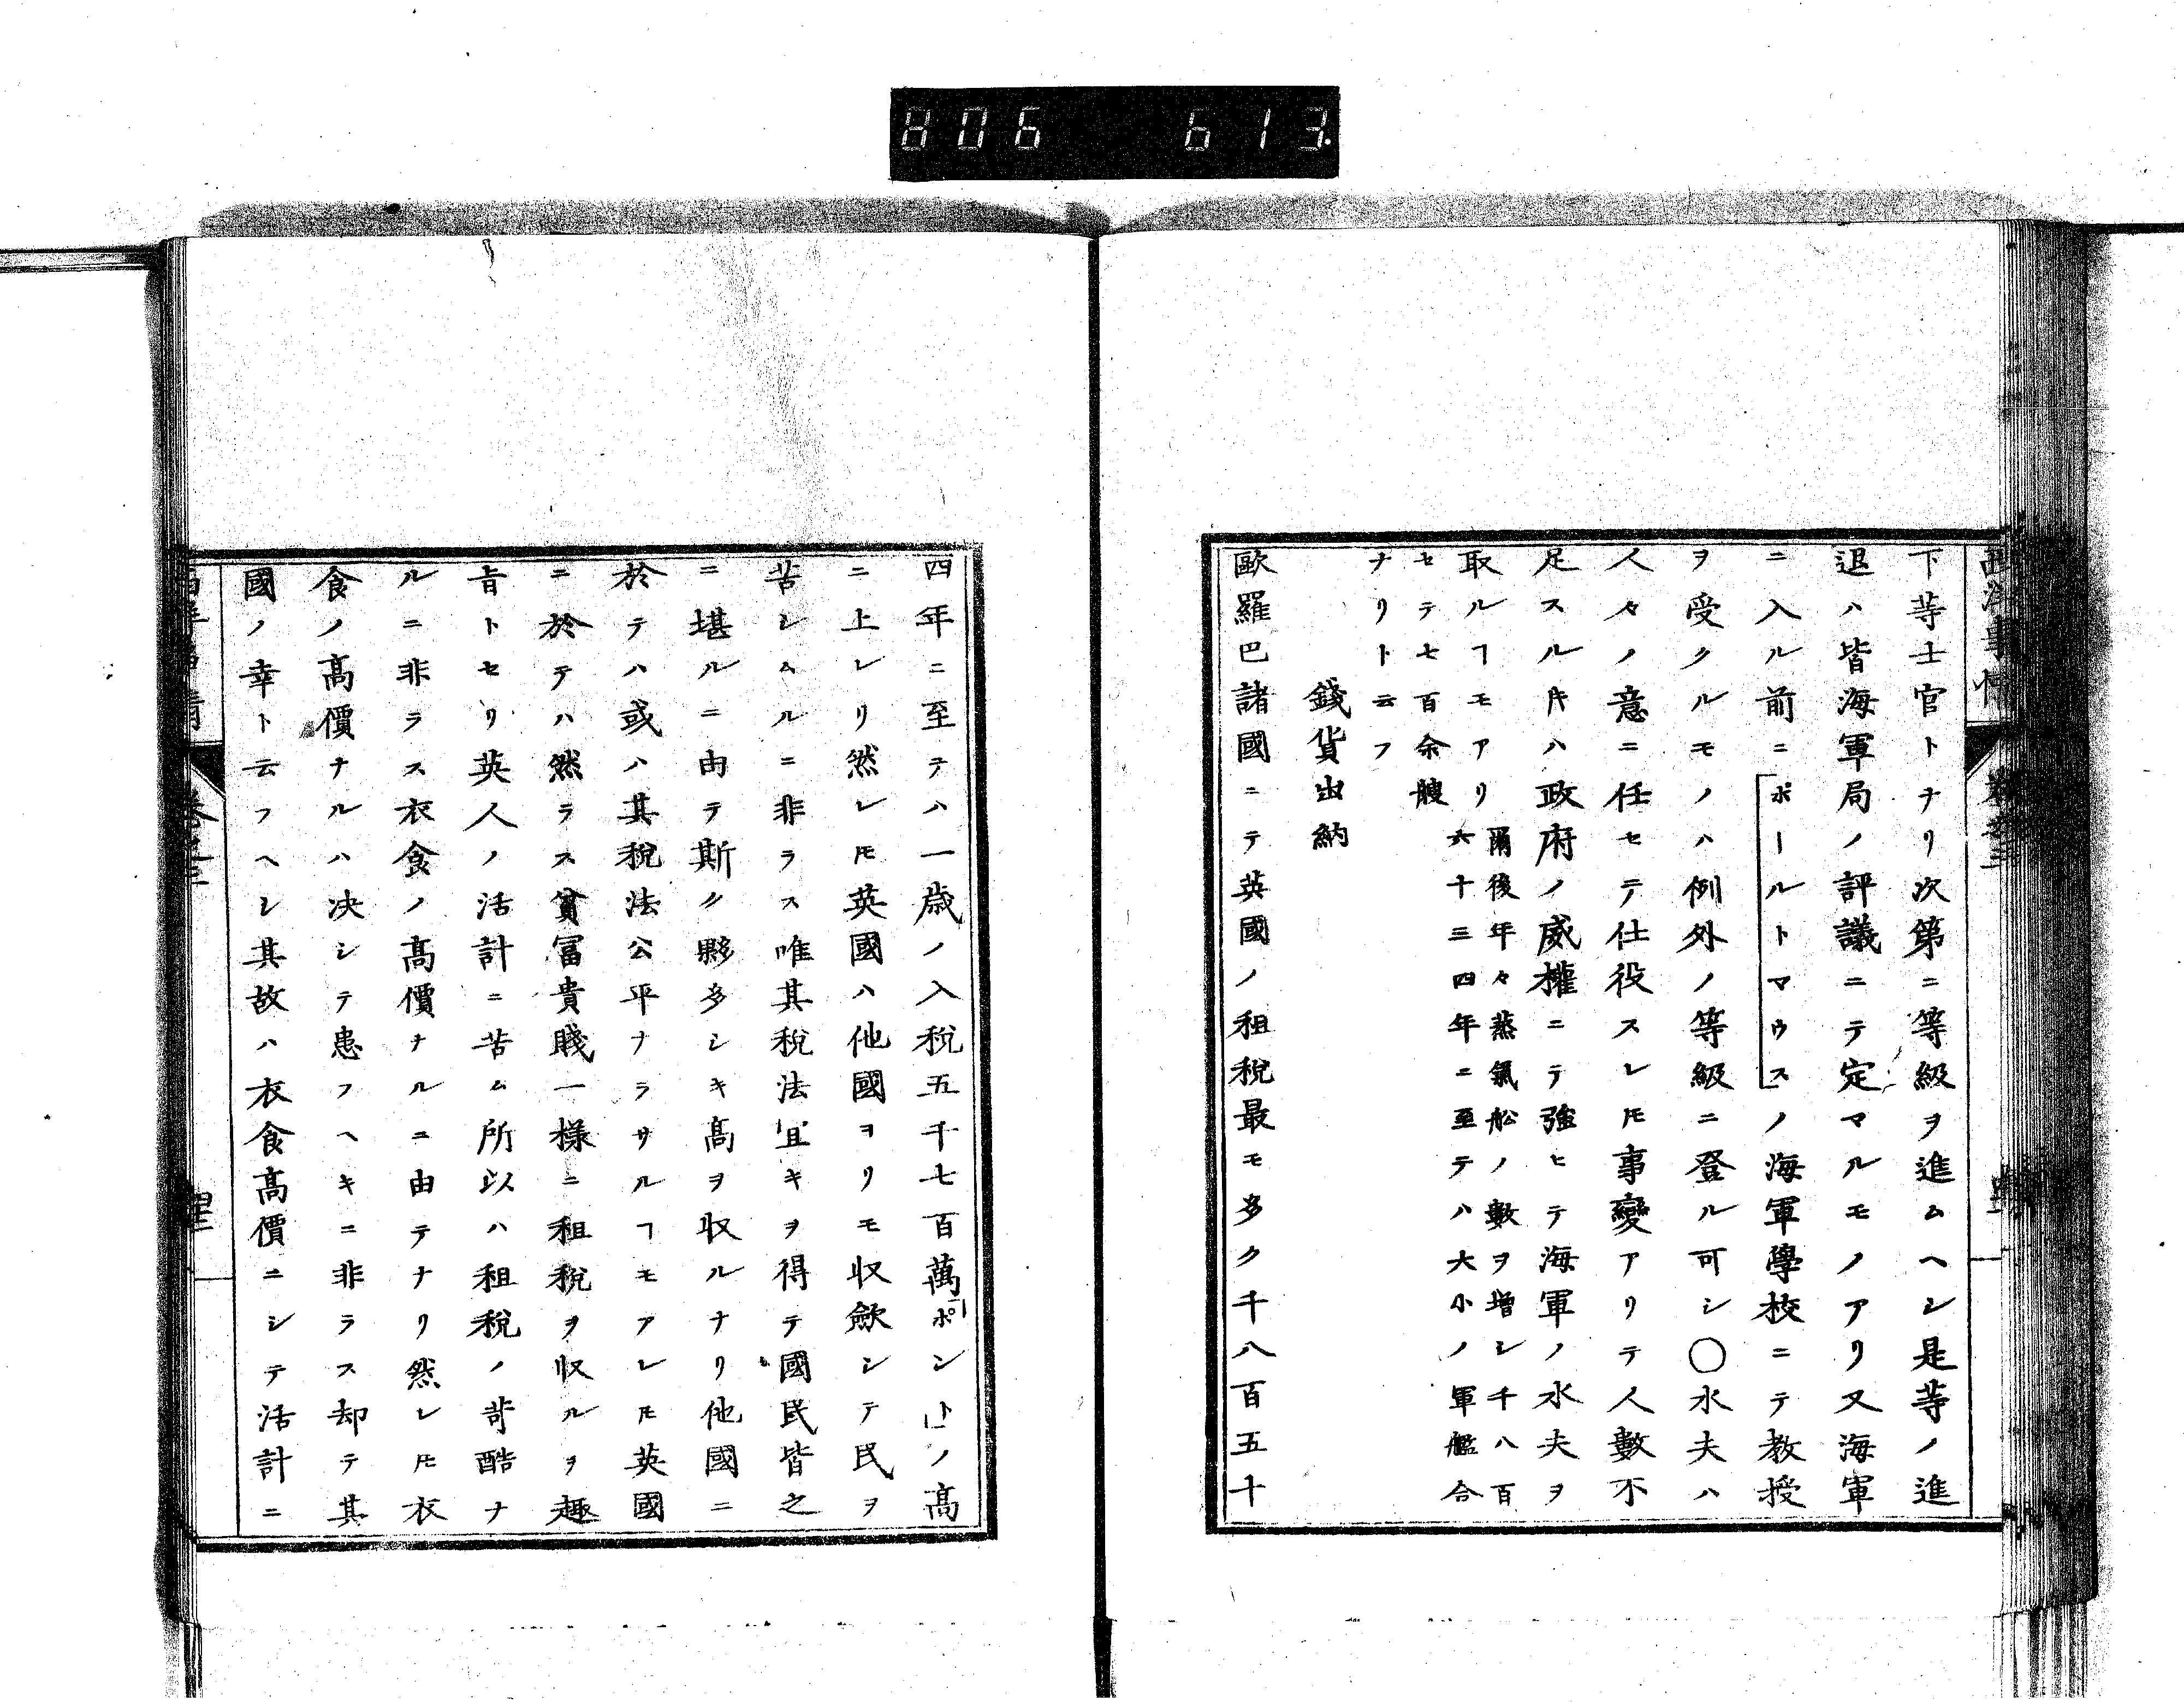 806 613
下等士官トナリ次第ニ等級ヲ進ムヘシ是等ノ進
退ハ皆海軍局ノ評議ニテ定マルモノアリ又海軍
ニ入ル前ニ「ポールトマウス」ノ海軍學校ニテ教授
ヲ受クルモノハ例外ノ等級ニ登ル可シ○水夫ハ
人々ノ意ニ任セテ仕役スレ𪜈事變アリテ人數不
足スル𪜈ハ政府ノ威權ニテ強ヒテ海軍ノ水夫ヲ
取ルヿモアリ
爾後年々蒸氣舩ノ數ヲ増シ千八百
六十三四年ニ至テハ大小ノ軍艦合
セテ七百余艘
ナリト云フ
錢貨出納
歐羅巴諸國ニテ英國ノ租税最モ多ク千八百五十
四年ニ至テハ一歳ノ入税五千七百萬「ポンド」ノ高
ニ上レリ然レ𪜈英國ハ他國ヨリモ収歛シテ民ヲ
苦シムルニ非ラス唯其税法宜キヲ得テ國民皆之
ニ堪ルニ由テ斯ク夥多シキ高ヲ収ルナリ他國ニ
於テハ或ハ其税法公平ナラサルヿモアレ𪜈英國
ニ於テハ然ラス貧冨貴賤一様ニ租税ヲ収ルヲ趣
旨トセリ英人ノ活計ニ苦ム所以ハ租税ノ苛酷ナ
ルニ非ラス衣食ノ高價ナルニ由テナリ然レ𪜈衣
食ノ高價ナルハ决シテ患フヘキニ非ラス却テ其
國ノ幸ト云フヘシ其故ハ衣食高價ニシテ活計ニ